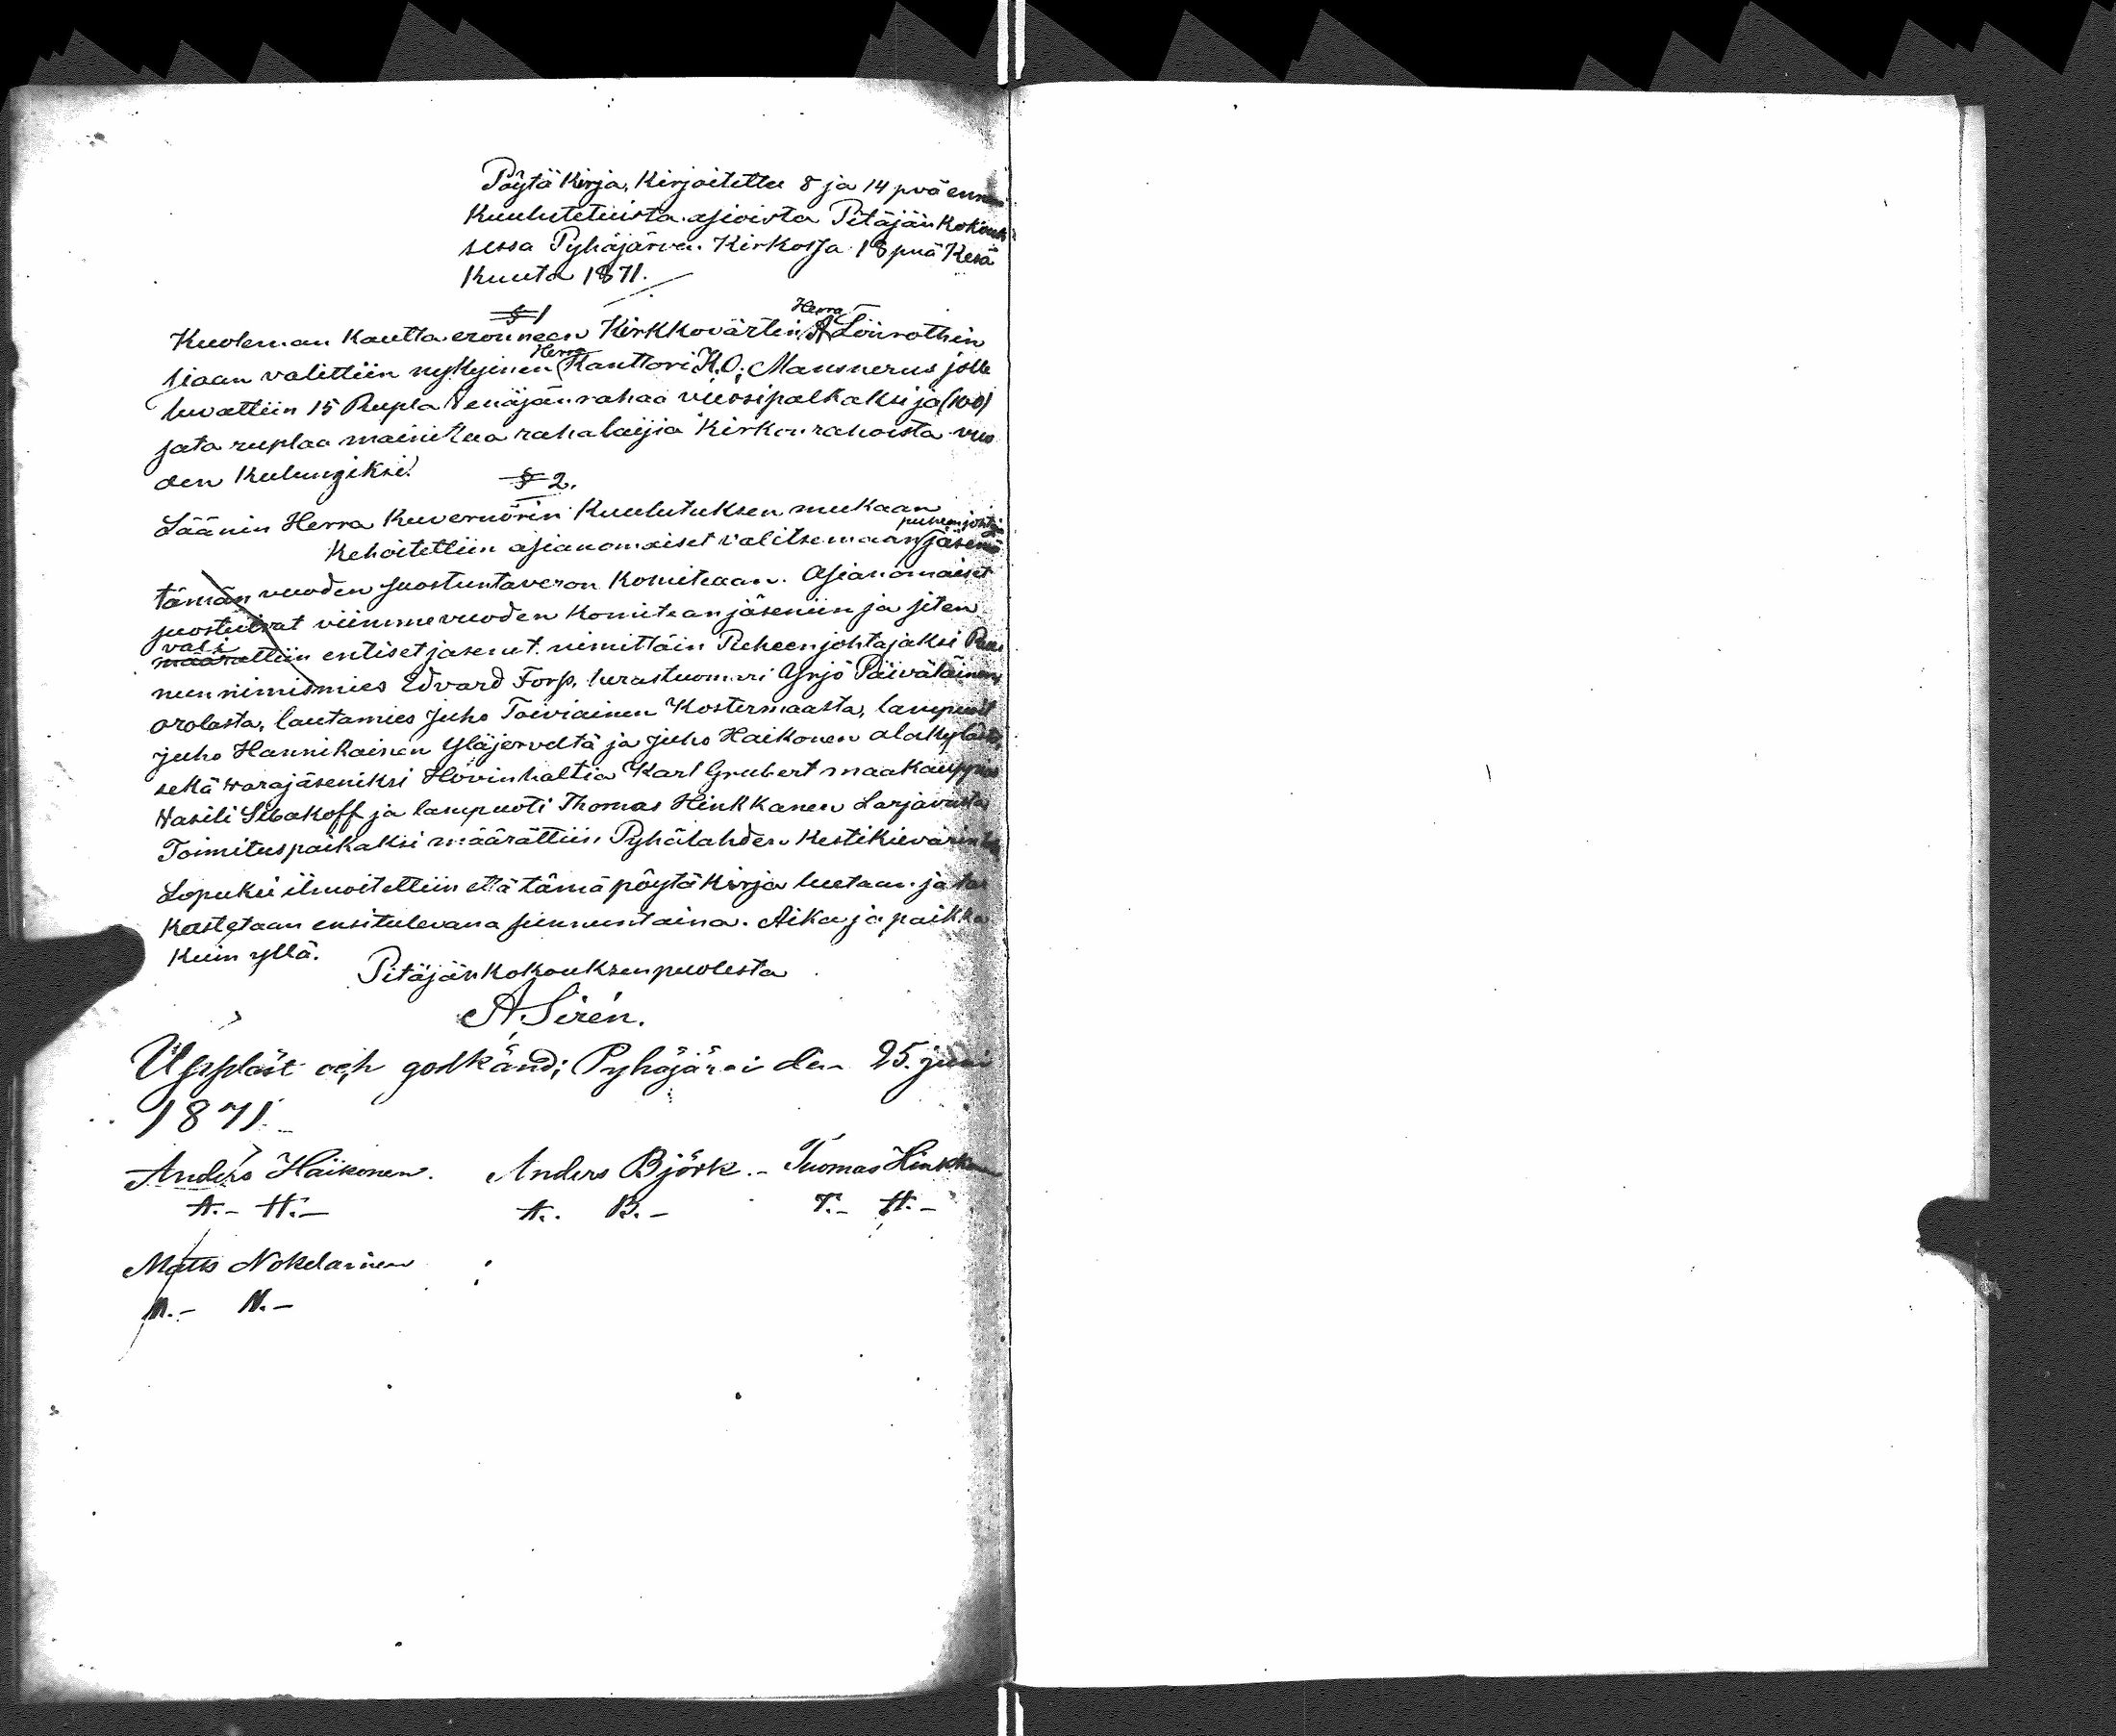 Pöytä Kirja, Kirjoitettu 8 ja 14 pvä ennen
Kuulutetuista asioista Pitäjän Kokouk
sessa Pyhäjärven Kirkossa 18 pnä Kesä
Kuuta 1871.
§ 1
Herra
Kuoleman Kautta eronneen Kirkkovärtin A Lönrothin
Herra
siaan valittiin nykyinen Kanttori K. O. Mansnerus jolle
luvattiin 15 Rupla Venäjän rahaa vuosipalkaksi ja (100)
sata ruplaa mainitua rahalaijia Kirkon rahoista vuo
den Kulungiksi.
§ 2.
Läänin Herra Kuvernörin Kuulutuksen mukaan
puhenjohtaja
Kehoitettiin asianomaiset valitsemaan jäseniä
tämän vuoden suostuntaveron Komiteaan. Asianomaiset
suostuivat viimmevuoden Komitean jäseniin ja siten
vali
määrattiin entiset jäsenet nimittäin Puheenjohtajaksi
nimismies Edvard Forss, herastuomari Yrjö Päiväläinen
orolasta, lautamies Juho Toiviainen Kostermaasta, lampuoit
Juho Hannikainen Yläjerveltä ja Juho Haikonen alakylästä,
sekä warajäseniksi Hövinhaltia Karl Grubert maakauppias
Wasili Sibakoff ja lampuoti Thomas Hinkkanen Larjavasta
Toimituspaikaksi määrättiin Pyhälahden Kestikievarin
Lopuksi ilmoitettiin että tämä pöytäkirja luetaan ja tar
kastetaan ensitulevana sunnuntaina. Aika ja paikka
Kuin yllä.
Pitäjänkokouksen puolesta
A. Sirén.
Uppläst och godkänd; Pyhäjärvi den 25. juni
1871.
Anders Häikonen. Anders Björk. - Tuomas Hinkkanen
A. - H. - A. B. - T. - H. -
Matts Nokelainen
M. - N. -